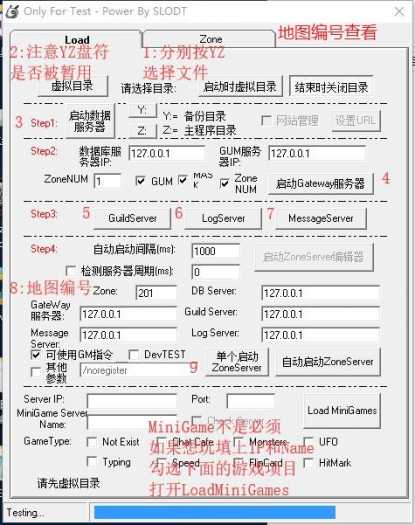 Only For Test - Power By SLODT
地图编号查看
Load
Zone
2:注意YZ盘符
是否被暂用
1:分别按YZ
选择文件
虚拟目录
请选择目录:
启动时虚拟目录
结束时关闭目录
3
Step1:
启动数据
服务器
Y:
Y:= 备份目录
Z:
Z:= 主程序目录
网站管理
设置URL
Step2:
数据库服
务器IP:
127.0.0.1
GUM服务
器IP:
127.0.0.1
ZoneNUM
1
GUM
MAS
K
Zone
NUM
启动Gateway服务器
4
Step3:
5
6
7
GuildServer
LogServer
MessageServer
Step4:
自动启动间隔(ms):
1000
启动ZoneServer编辑器
检测服务器周期(ms):
0
8:地图编号
Zone:
201
DB Server:
127.0.0.1
GateWay
服务器:
127.0.0.1
Guild Server:
127.0.0.1
Message
Server:
127.0.0.1
Log Server:
127.0.0.1
可使用GM指令
DevTEST
其他
参数
/noregister
9
单个启动
ZoneServer
自动启动ZoneServer
Server IP:
Port:
MiniGame Server
Name:
Load MiniGames
MiniGame不是必须
如果想玩填上IP和Name
勾选下面的游戏项目
打开LoadMiniGames
GameType:
Not Exist
Chat Cafe
Monsters
UFO
Typing
Speed
FlipCard
HitMark
请先虚拟目录
Testing...